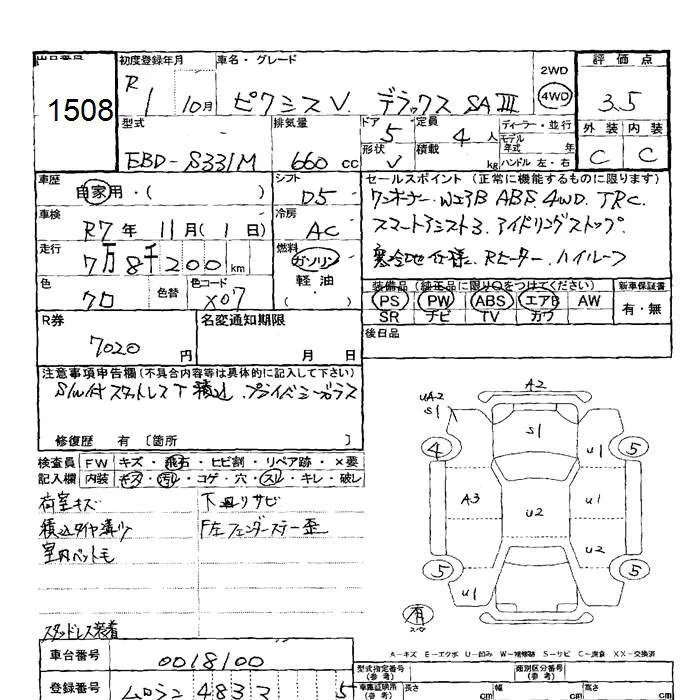 出品番号 初度登録年月 車名・グレード 2WD 評価点
1508 R1 10月 ピクシスV. デラックス SAⅢ 4WD 3.5
型式 排気量 ドア 5 定員 4人 ディーラー・並行 外装 内装
EBD-S331M 660cc 形状 V 積載 kg モデル年式 年 C C
ハンドル 左・右
車歴 自家用・( ) シフト D5 セールスポイント (正常に機能するものに限ります)
ワンオーナー. WエアB ABS 4WD. TRC.
車検 R7年 11月(1日) 冷房 AC スマートアシスト3. アイドリングストップ.
走行 7万8千200km 燃料 ガソリン 軽油 ( ) 寒冷地仕様. Rヒーター. ハイルーフ
色 クロ 色替 色コード X07 装備品 (純正品に限り○をつけてください) 新車保証書
PS PW ABS エアB AW 有・無
SR ナビ TV カワ
R券 7020円 名変通知期限 月 日 後日品
注意事項申告欄 (不具合内容等は具体的に記入して下さい)
S/W付スタットレスT積込. プライバシーガラス
修復歴 有 〔箇所 〕
検査員 FW キズ・飛石・ヒビ割・リペア跡・×要
記入欄 内装 キズ・汚レ・コゲ・穴・スレ・キレ・破レ
荷室キズ 下回リサビ
積込タイヤ溝少 F左フェンダーステー歪
室内ペット毛
スタッドレス装着
A2
UA2
S1
S1
4 U1 5
A3 U2 U1
U2
5 U1 5
有
A-キズ E-エクボ U-凹み W-補修跡 S-サビ C-腐食 XX-交換済
車台番号 0018100 型式指定番号 (参考) 類別区分番号 (参考)
登録番号 483 5 車庫証明用 (参考) 長さ cm 幅 cm 高さ cm